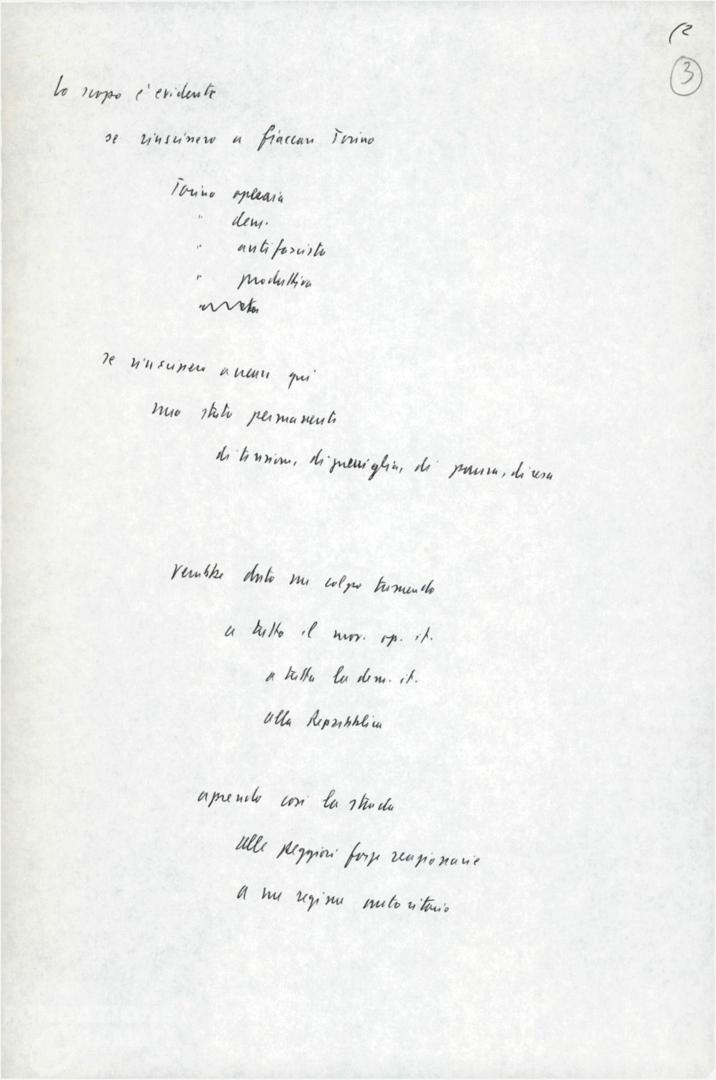 3
Lo scopo è evidente
se riuscissero a fiaccare Torino
Torino operaia
" dem.
" antifascista
" produttiva
se riuscissero a creare qui
uno stato permanente
di tensione, di guerriglia, di paura, di resa
verrebbe dato un colpo tremendo
a tutto il mov. op. it.
a tutta la dem. it.
alla Repubblica
aprendo così la strada
alle peggiori forze reazionarie
a un regime autoritario